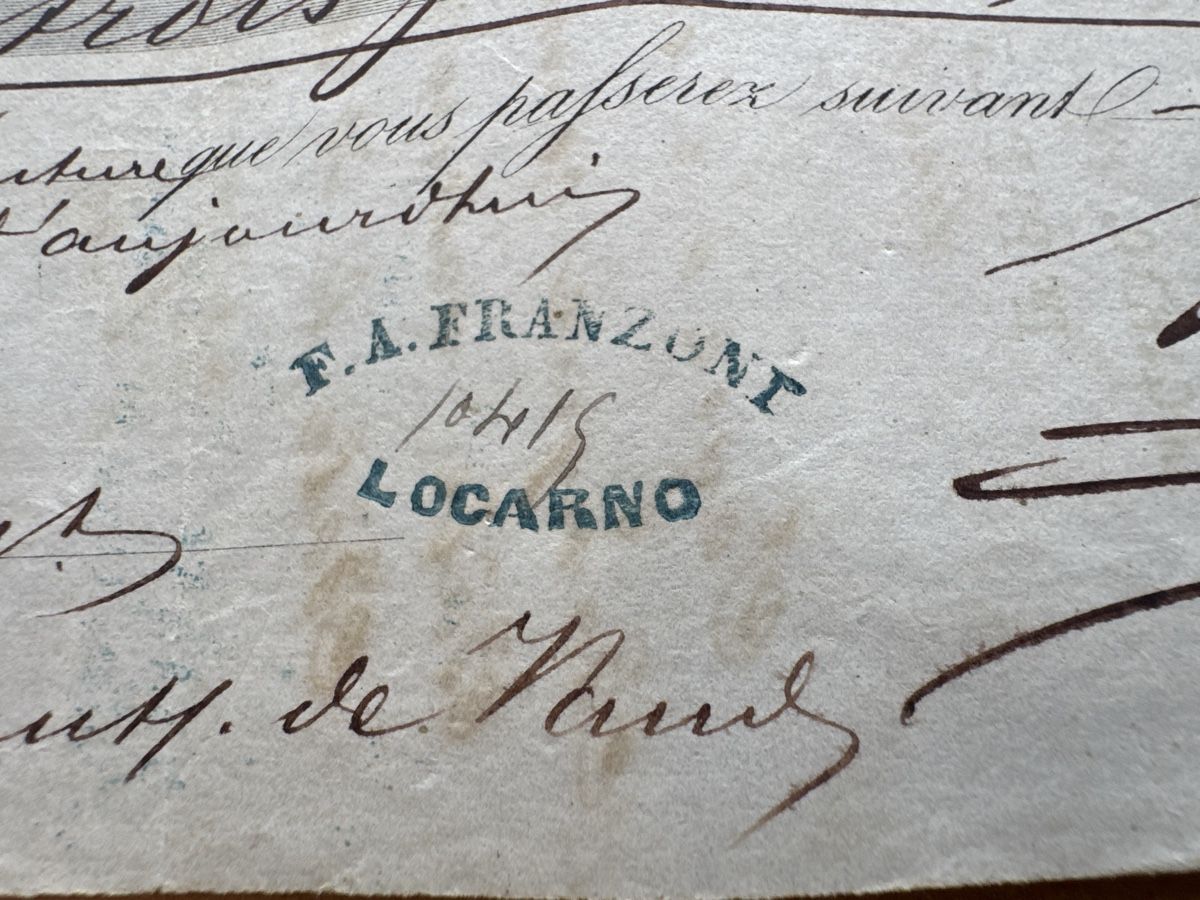 trois
que vous passerez suivant
d'aujourdhui
F. A. FRANZONI
10419
LOCARNO
de Vaud